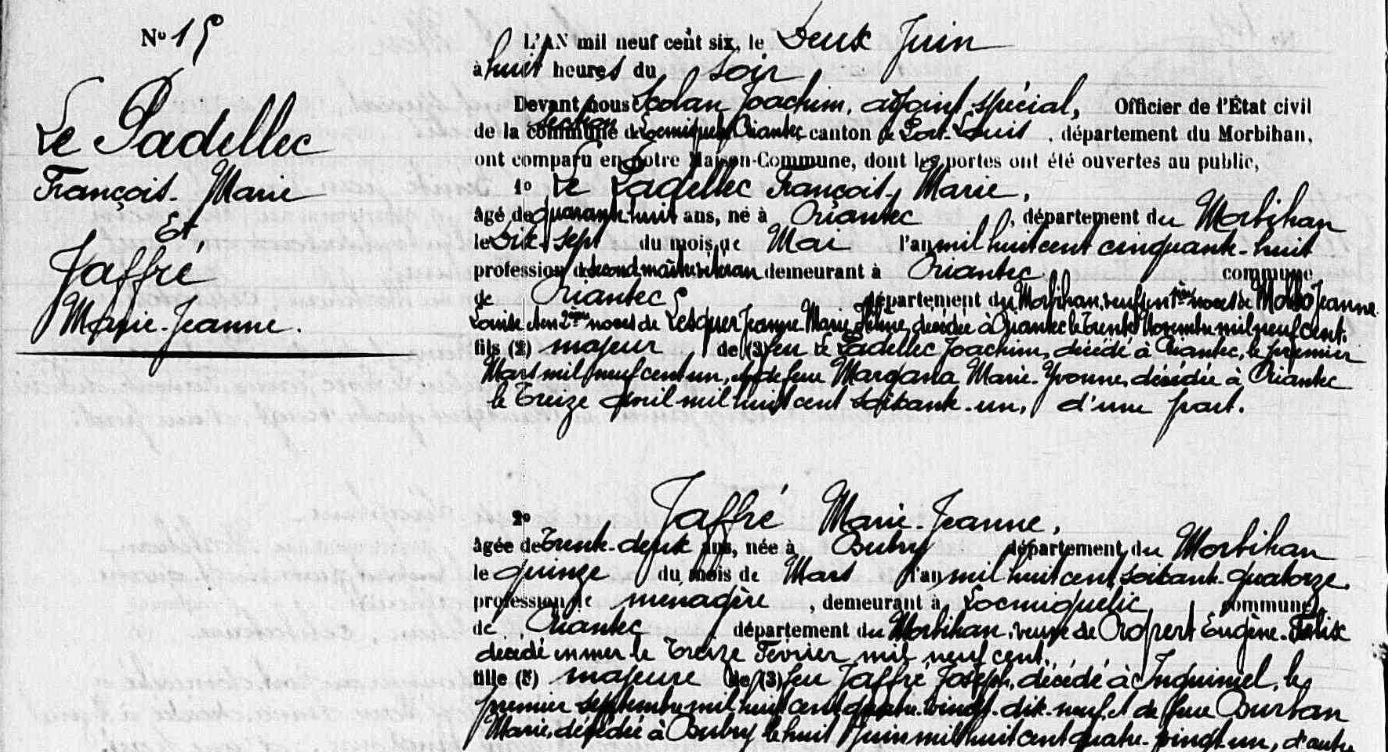 N° 15
Le Padellec
François-Marie
Et
Jaffré
Marie-Jeanne.
L'AN mil neuf cent six, le Deux Juin
à huit heures du soir
Devant nous Scolan Joachim, adjoint spécial, Officier de l'État civil
section
de la commune de Locmiquélic Riantec canton de Port-Louis, département du Morbihan,
ont comparu en notre Maison-Commune, dont les portes ont été ouvertes au public,
1° Le Padellec François-Marie,
âgé de quarante-huit ans, né à Riantec, département du Morbihan
le Dix-sept du mois de Mai l'an mil huit cent cinquante-huit
profession de second maître vétéran demeurant à Riantec commune
de Riantec département du Morbihan, veuf en 1ères noces de Jeanne
Louise et en 2èmes noces de Lesquer Jeanne Marie décédée à Riantec le Trente Novembre mil neuf cent.
fils (2) majeur de (3) feu Le Padellec Joachim, décédé à Riantec, le premier
Mars mil neuf cent un, et de feue Margana Marie-Yvonne, décédée à Riantec
le Treize avril mil huit cent soixante-un, d'une part.
2° Jaffré Marie-Jeanne,
âgée de Trente-deux ans, née à Bubry département du Morbihan
le quinze du mois de Mars l'an mil huit cent soixante-quatorze
profession de ménagère, demeurant à Locmiquélic commune
de Riantec département du Morbihan, veuve de Ropert Eugène-Félix
décédé en mer le Treize Février mil neuf cent.
fille (2) majeure de (3) feu Jaffré Joseph, décédé à Inguiniel, le
premier septembre mil huit cent quatre-vingt-dix-neuf, et de feue
Marie, décédée à Bubry le huit Juin mil huit cent quatre-vingt-un, d'autre